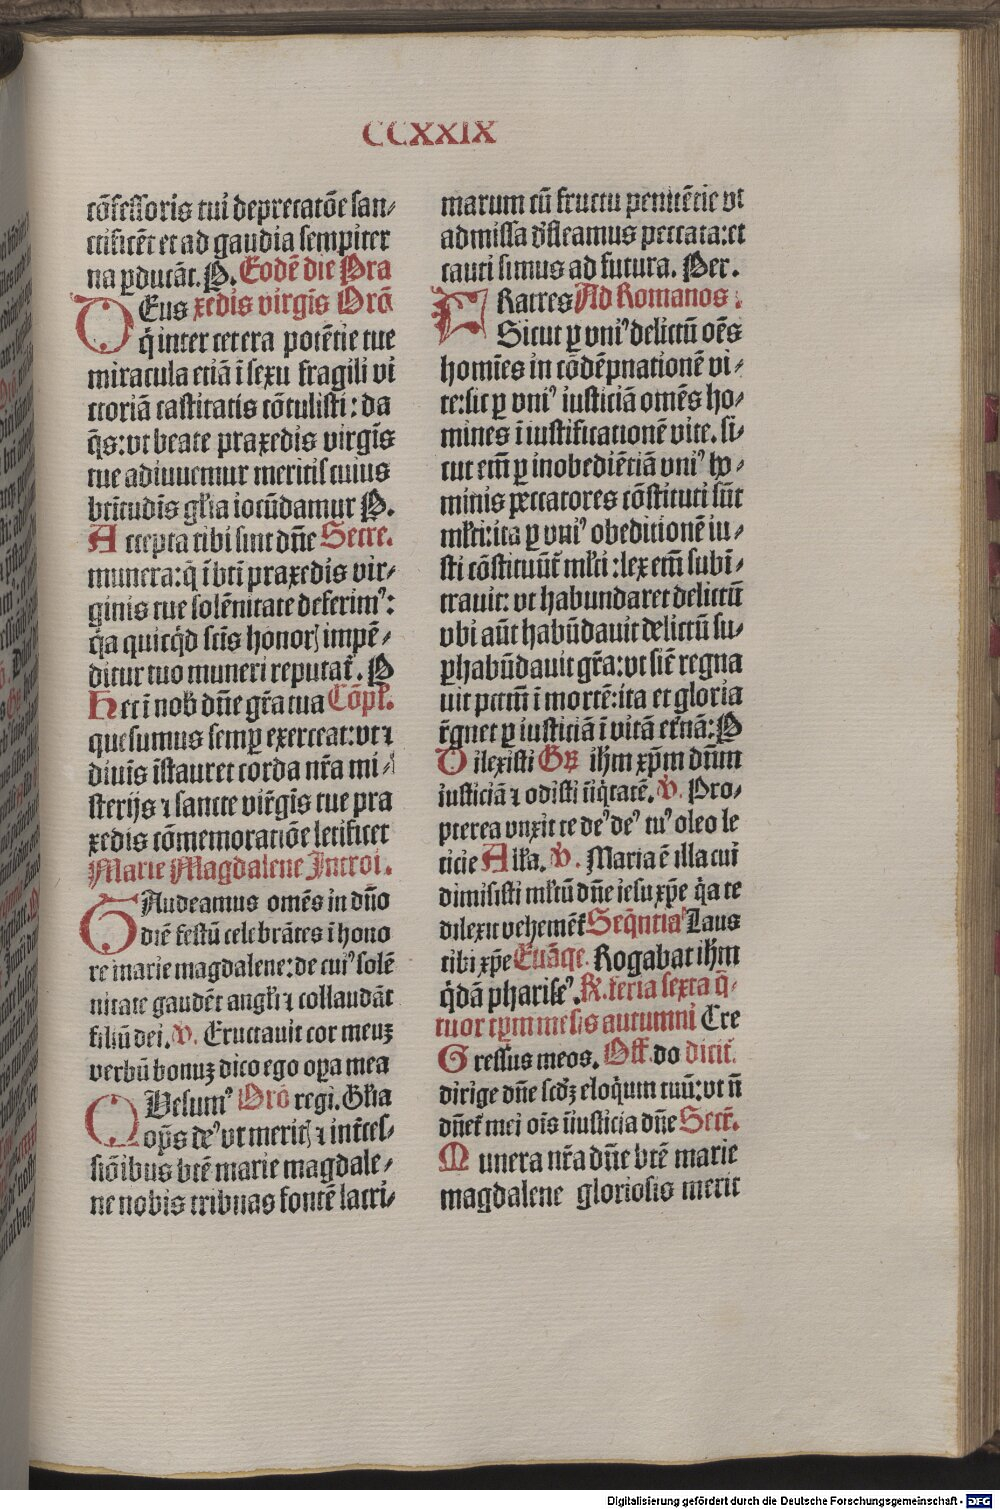 CCXXIX
cōfessoris tui deprecatōe san⸗
ctificēt et ad gaudia sempiter
na ꝑducāt. P. Eodē die Pra
DEus xedis virgīs Orō
q̄ inter cetera potētie tue
miracula etiā ī sexu fragili vi
ctoriā castitatis cōtulisti: da
q̄s: vt beate praxedis virgīs
tue adiuuemur meritis cuius
btītudīs gl̄ia iocūdamur P.
Accepta tibi sint dn̄e Secre.
munera: q̄ ī btī praxedis vir⸗
ginis tue solēnitate deferimꝰ:
q̄a quicq̄d sctīs honorꝭ impē⸗
ditur tuo muneri reputat̄. P
Hec ī nob̄ dn̄e gr̄a tua Cōpl̄.
quesumus semꝑ exerceat: vt ⁊
diuīs īstauret corda nr̄a mi⸗
sterijs ⁊ sancte vir̄gīs tue pra
xedis cōmemoratiōe letificet
Marie Magdalene Introi.
GAudeamus omēs in dn̄o
diē festū celebrātes ī hono
re marie magdalene: de cuiꝰ solē
nitate gaudēt angl̄i ⁊ collaudāt
filiū dei. V. Eructauit cor meuꝫ
verbū bonuꝫ dico ego oꝑa mea
QVesumꝰ Orō regi. Gl̄ia
op̄s deꝰ vt meritꝭ ⁊ int̄ces⸗
siōibus btē marie magdale⸗
ne nobis tribuas fontē lacri⸗
marum cū fructu penitētie vt
admissa d̄fleamus peccata: et
cauti simus ad futura. Per.
FRatres Ad Romanos.
Sicut ꝑ vniꝰ delictū oēs
homīes in cōdēpnationē vi⸗
te: sic ꝑ vniꝰ iusticiā omēs ho⸗
mines ī iustificationē vite. si⸗
cut em̄ ꝑ inobediētiā vniꝰ ho⸗
minis peccatores cōstituti sūt
ml̄ti: ita ꝑ vniꝰ obeditionē iu⸗
sti cōstituūt̄ ml̄ti: lex em̄ subī⸗
trauit: vt habundaret delictū
vbi aūt habūdauit delictū su⸗
ꝑhabūdauit gr̄a: vt sic̄ regna
uit pctm̄ ī mortē: ita et gloria
r̄gnet ꝑ iusticiā ī vitā et̄nā: P
Dilexisti Gr̄ ih̄m xp̄m dn̄m
iusticiā ⁊ odisti īiq̄tatē. V. Pro⸗
pterea vnxit te deꝰ deꝰ tuꝰ oleo le
ticie All̄a. V. Maria ē illa cui
dimisisti ml̄tū dn̄e iesu xp̄e q̄a te
dilexit vehemēt̄ Seq̄ntia Laus
tibi xp̄e Euāge. Rogabat ih̄m
q̄dā phariseꝰ. R. feria sexta q̄⸗
tuor tp̄m mēsis autumni Cre
Gressus meos. Off. do dicit̄.
dirige dn̄e scd̄ꝫ eloq̄um tuū: vt n̄
dn̄et̄ mei ois īiusticia dn̄e Secr̄.
Munera nr̄a dn̄e btē marie
magdalene gloriosis merit
Digitalisierung gefördert durch die Deutsche Forschungsgemeinschaft - DFG